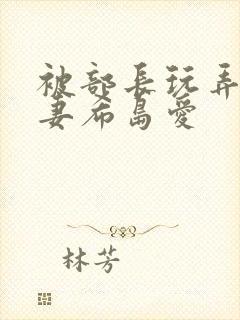 被部長玩弄
妻希島愛
林芳